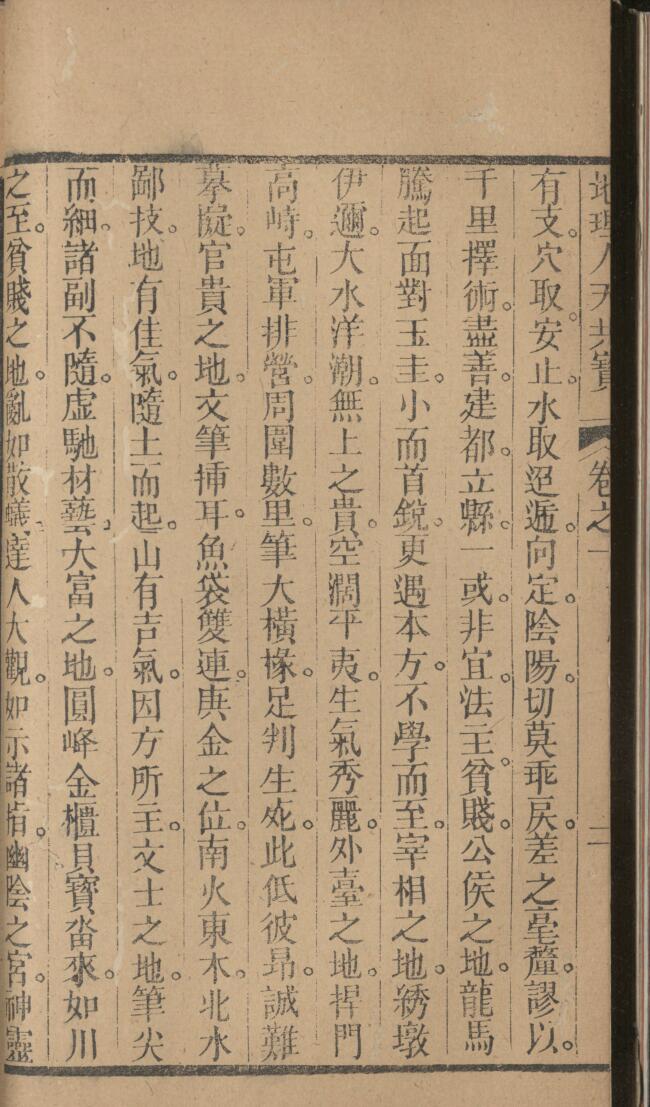 地理人天共寶　卷之一　二
有支。穴取。安止。水取迢遞。向定。陰陽。切莫乖戾。差之毫釐。謬以。
千里擇術。盡善。建都。立縣。一或。非宜。法主。貧賤。公侯之地。龍馬
騰起。面對玉圭。小而首銳。更遇本方。不學而至。宰相之地。綉墩
伊邇。大水洋潮。無上之貴。空濶平夷。生氣秀麗。外臺之地。捍門
高峙。屯軍排營。周圍數里。筆大橫椽。足判生死。此低彼昂。誠難
摹擬。官貴之地。文筆揷耳。魚袋雙連。庚金之位。南火東木。北水
鄙技。地有佳氣。隨土而起。山有吉氣。因方所主。文士之地。筆尖
而細。諸副不隨。虛馳材藝。大富之地。圓峰金櫃。貝寶畓來。如川
之至。貧賤之地。亂如散蟻。達人大觀。如示諸指。幽陰之宮。神靈